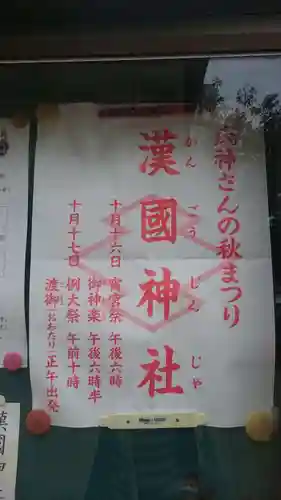 神さんの秋まつり
漢國神社
かんごうじんじゃ
十月十六日 宵宮祭 午後六時
御神楽 午後六時半
十月十七日 例大祭 午前十時
渡御(おわたり)正午出発